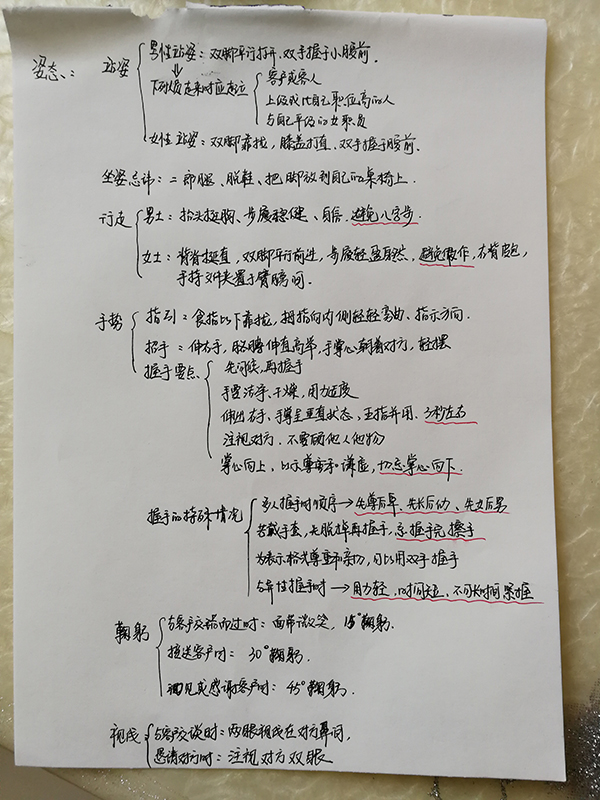 姿态：站姿 男性站姿：双脚平行打开、双手握于小腹前.
下列人员走来时应起立 客户或客人
上级或比自己职位高的人
与自己平级的女职员
女性站姿：双脚靠拢，膝盖打直、双手握于腹前.
坐姿忌讳：二郎腿、脱鞋、把脚放到自己的桌椅上.
行走 男士：抬头挺胸、步履稳健、自信.避免八字步.
女士：背脊挺直，双脚平行前进，步履轻盈自然、避免做作，右背包，
手持文件夹置于臂膀间.
手势 指引：食指以下靠拢，拇指向内侧轻轻弯曲、指示方向.
招手：伸右手，胳膊伸直高举，手掌心朝着对方，轻摆
握手要点 先问候，再握手
手要洁净、干燥，用力适度
伸出右手、手掌呈垂直状态、五指并用、3秒左右
注视对方.不要顾他人他物
掌心向上，以示尊重和谦虚，切忌掌心向下.
握手的特殊情况 多人握手时顺序→先尊后卑、先长后幼、先女后男
若戴手套，先脱掉再握手，忌握手完擦手
为表示格外尊重和亲切，可以用双手握手
与异性握手时→用力轻、时间短、不可长时间紧握
鞠躬 与客户交错而过时：面带微笑，15°鞠躬.
接送客户时：30°鞠躬.
遇见或感谢客户时：45°鞠躬.
视线 与客户交谈时：两眼视线在对方鼻间，
恳请对方时：注视对方双眼